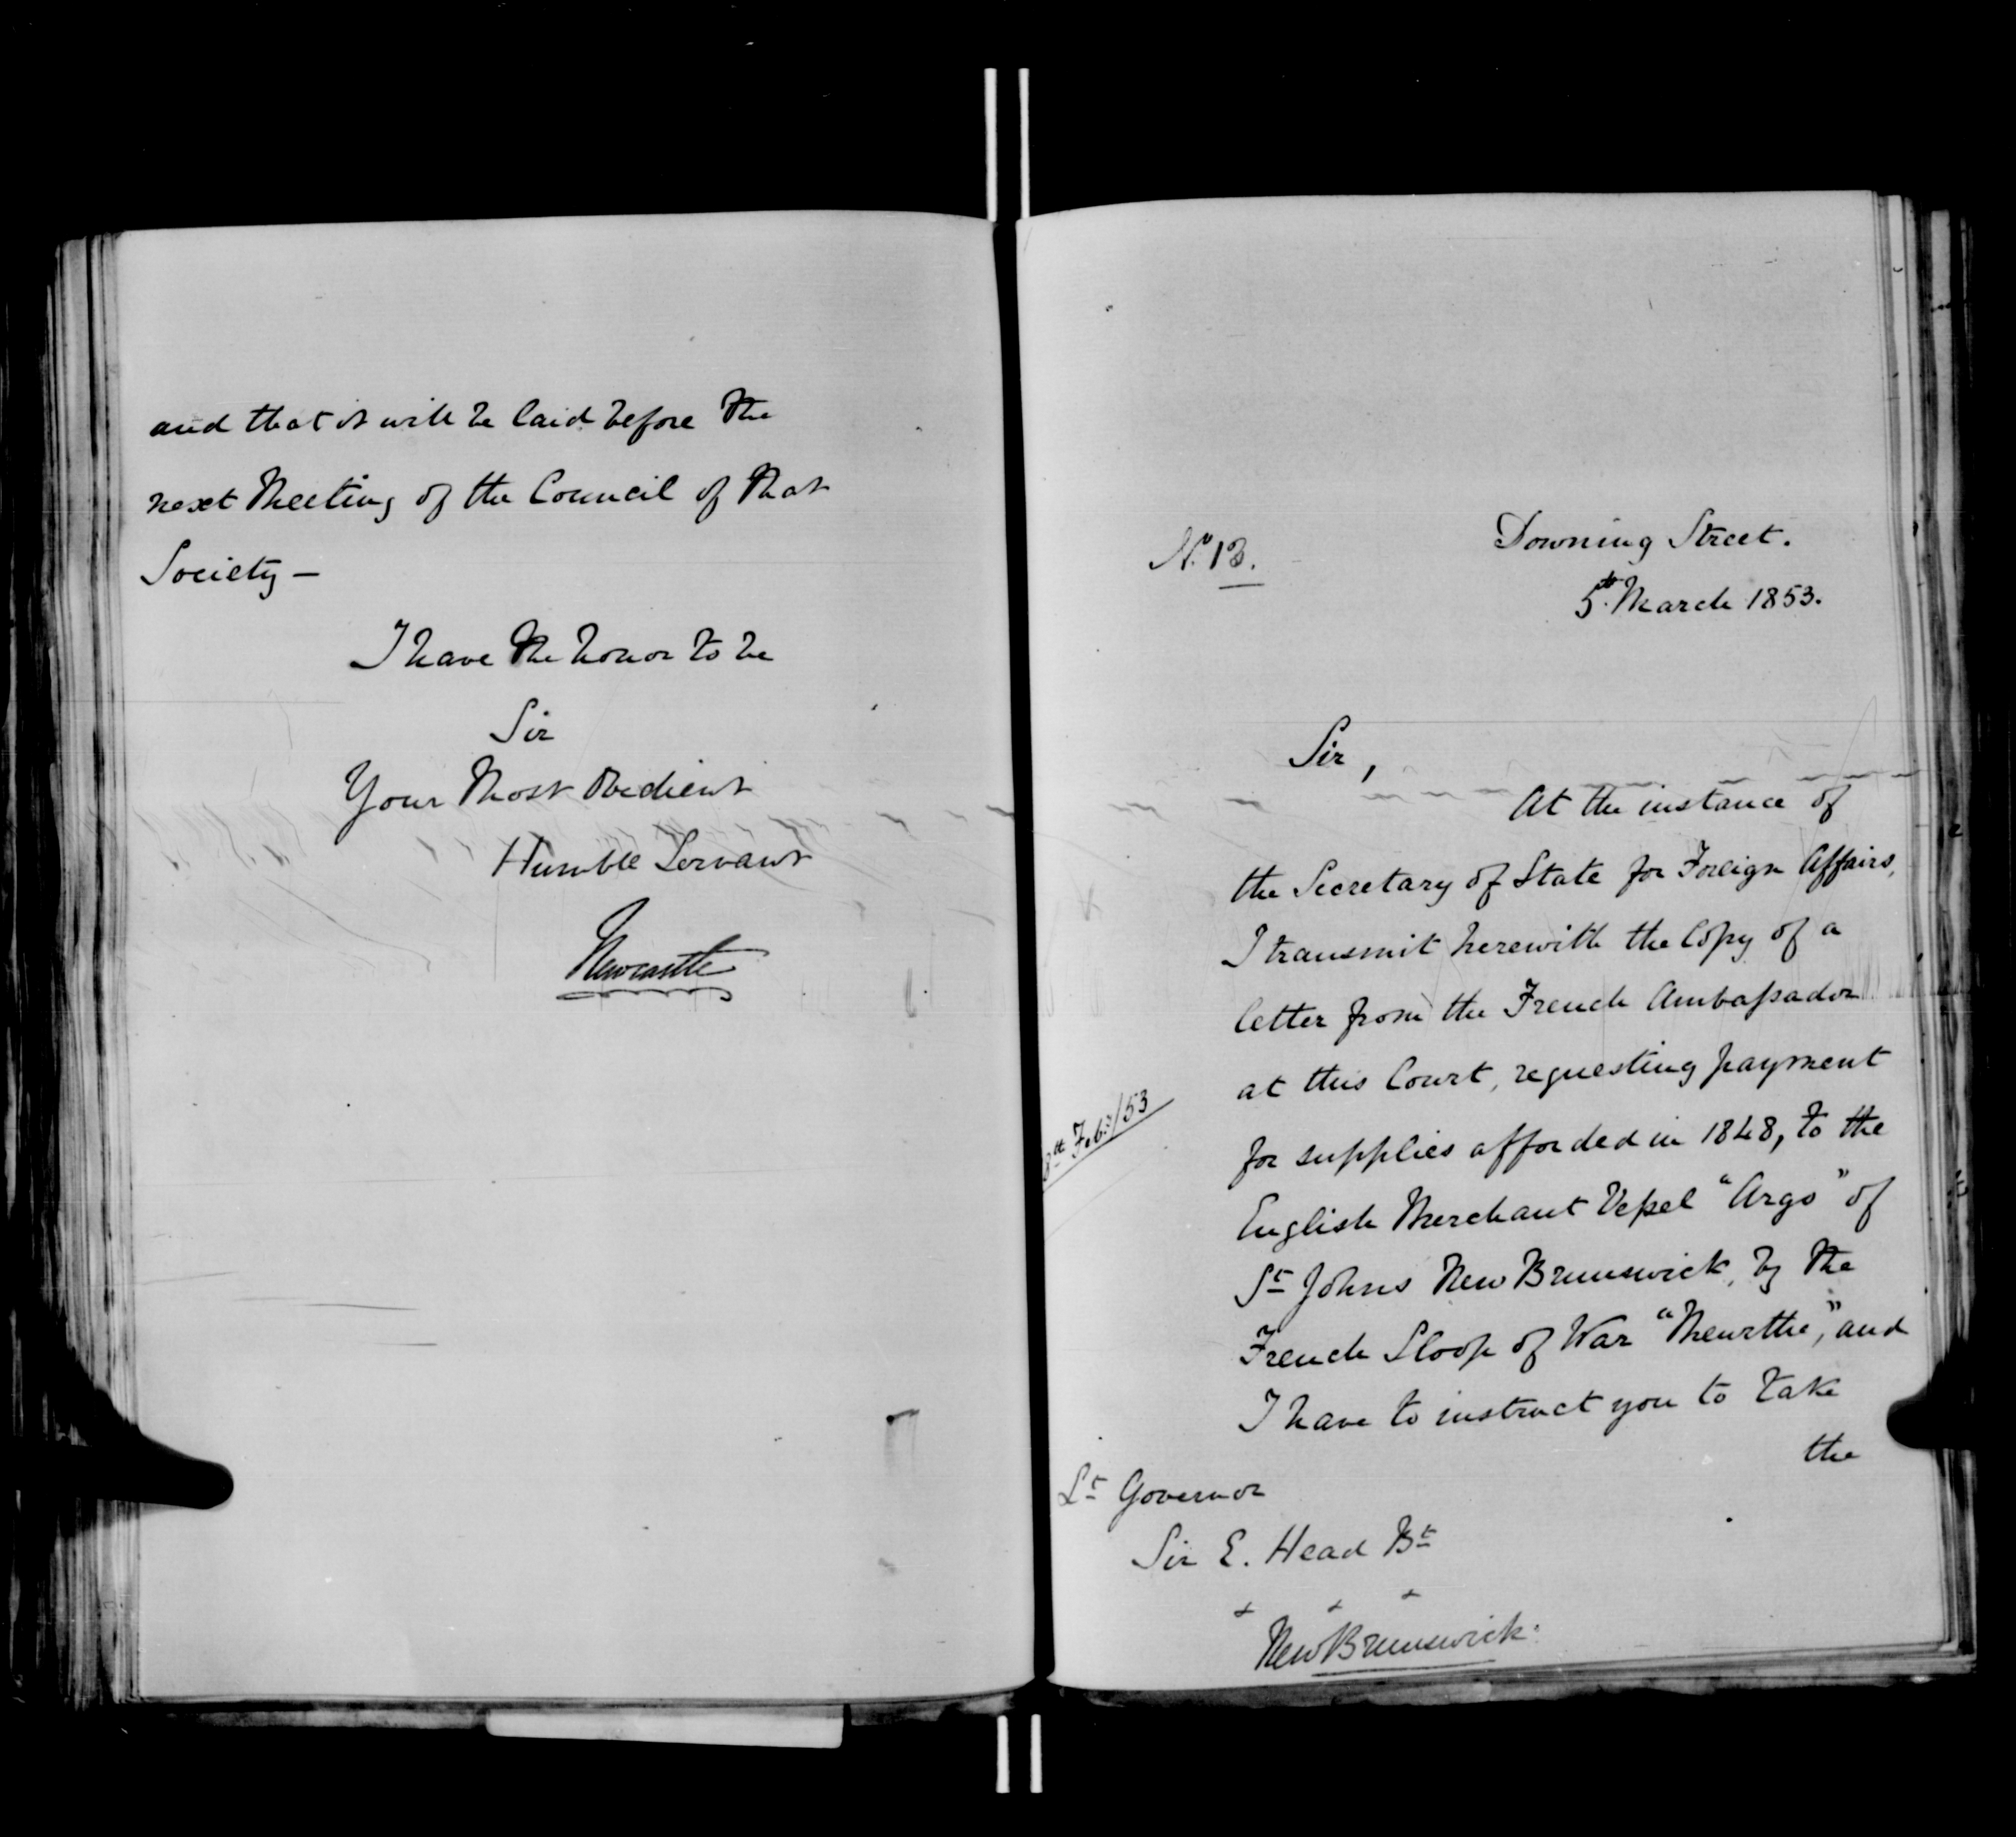 and that it will be laid before the
next Meeting of the Council of that
Society —
I have the honor to be
Sir
Your Most Obedient
Humble Servant
Newcastle
No. 13.
Downing Street.
5th March 1853.
Sir,
At the instance of
the Secretary of State for Foreign Affairs,
I transmit herewith the Copy of a
letter from the French Ambassador
at this Court, requesting payment
th Feby/53
for supplies afforded in 1848, to the
English Merchant Vessel "Argo" of
St Johns New Brunswick, by the
French Sloop of War "Meurthe", and
I have to instruct you to take
the
Lt Governor
Sir E. Head Bt
New Brunswick.